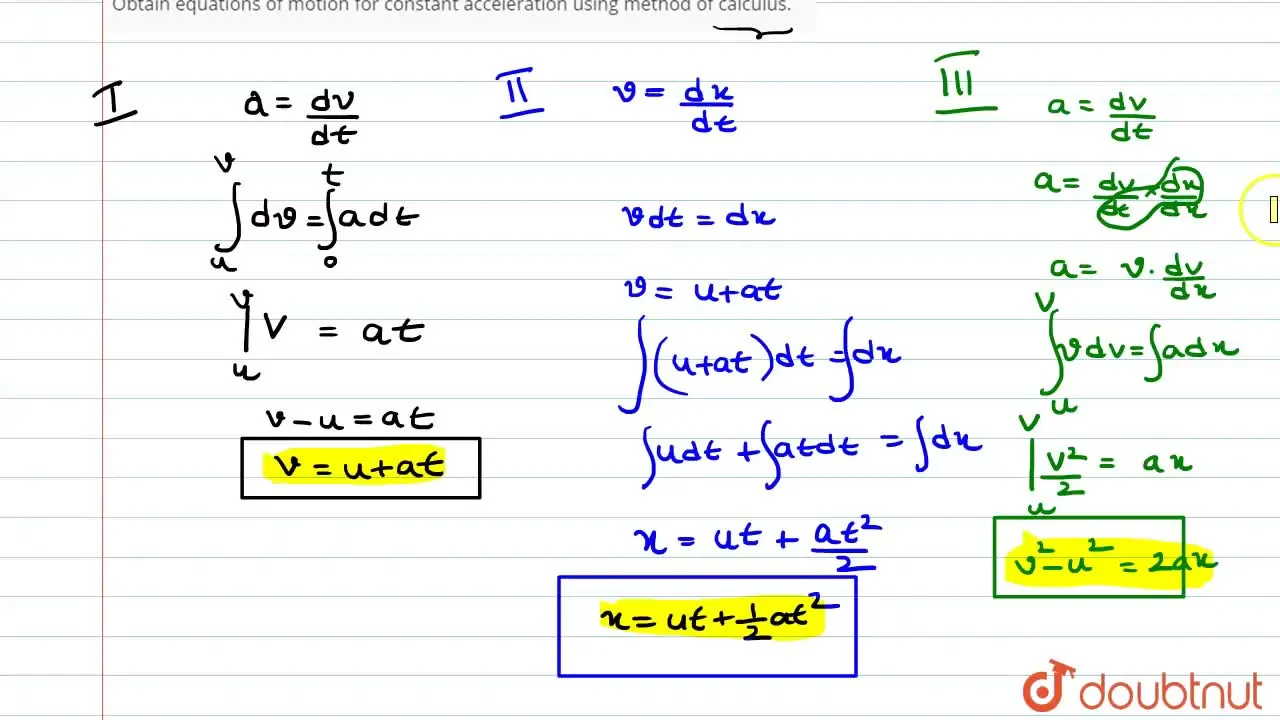 Obtain equations of motion for constant acceleration using method of calculus.
I
a = dv/dt
∫_u^v dv = ∫_0^t a dt
|_u^v V = at
v - u = at
v = u + at
II
v = dx/dt
v dt = dx
v = u + at
∫(u + at) dt = ∫dx
∫u dt + ∫at dt = ∫dx
x = ut + at²/2
x = ut + 1/2 at²
III
a = dv/dt
a = dv/dt × dx/dx
a = v · dv/dx
∫_u^v v dv = ∫a dx
|_u^v V²/2 = ax
v² - u² = 2ax
doubtnut